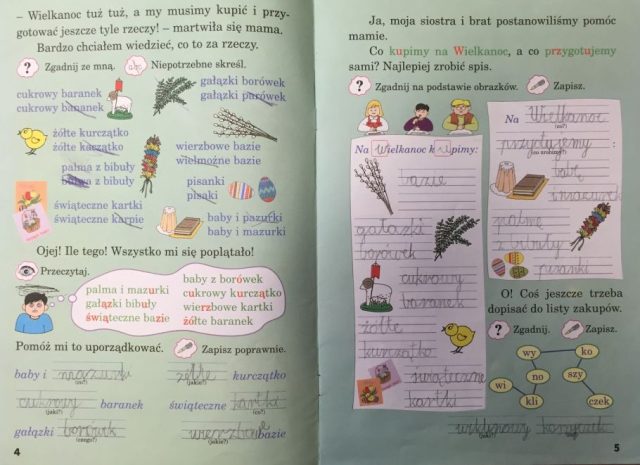 – Wielkanoc tuż tuż, a my musimy kupić i przy-
gotować jeszcze tyle rzeczy! – martwiła się mama.
Bardzo chciałem wiedzieć, co to za rzeczy.
? Zgadnij ze mną. abc Niepotrzebne skreśl.
cukrowy baranek
cukrowy bananek
gałązki borówek
gałązki parówek
żółte kurczątko
żółte kaczątko
wierzbowe bazie
wielmożne bazie
palma z bibuły
z bibuły
pisanki
pisaki
świąteczne kartki
świąteczne karpie
baby i pazurki
baby i mazurki
Ojej! Ile tego! Wszystko mi się poplątało!
Przeczytaj.
palma i mazurki
gałązki bibuły
świąteczne bazie
baby z borówek
cukrowy kurczątko
wierzbowe kartki
żółte baranek
Pomóż mi to uporządkować. ? Zapisz poprawnie.
baby i mazurki
(co?)
żółte kurczątko
(jakie?)
cukrowy baranek
(jaki?)
świąteczne kartki
(co?)
gałązki borówek
(czego?)
wierzbowe bazie
(jakie?)
4
Ja, moja siostra i brat postanowiliśmy pomóc
mamie.
Co kupimy na Wielkanoc, a co przygotujemy
sami? Najlepiej zrobić spis.
? Zgadnij na podstawie obrazków. Zapisz.
Na Wielkanoc kupimy:
bazie
gałązki
borówek
cukrowy
baranek
żółte
kurczątko
świąteczne
kartki
Na Wielkanoc
(co?)
przygotujemy :
(co zrobimy?)
babę
mazurek
palmę
z bibuły
pisanki
O! Coś jeszcze trzeba
dopisać do listy zakupów.
? Zgadnij. Zapisz.
wy
ko
no
szy
wi
kli
czek
wiklinowy koszyczek
(jaki?) (co?)
5